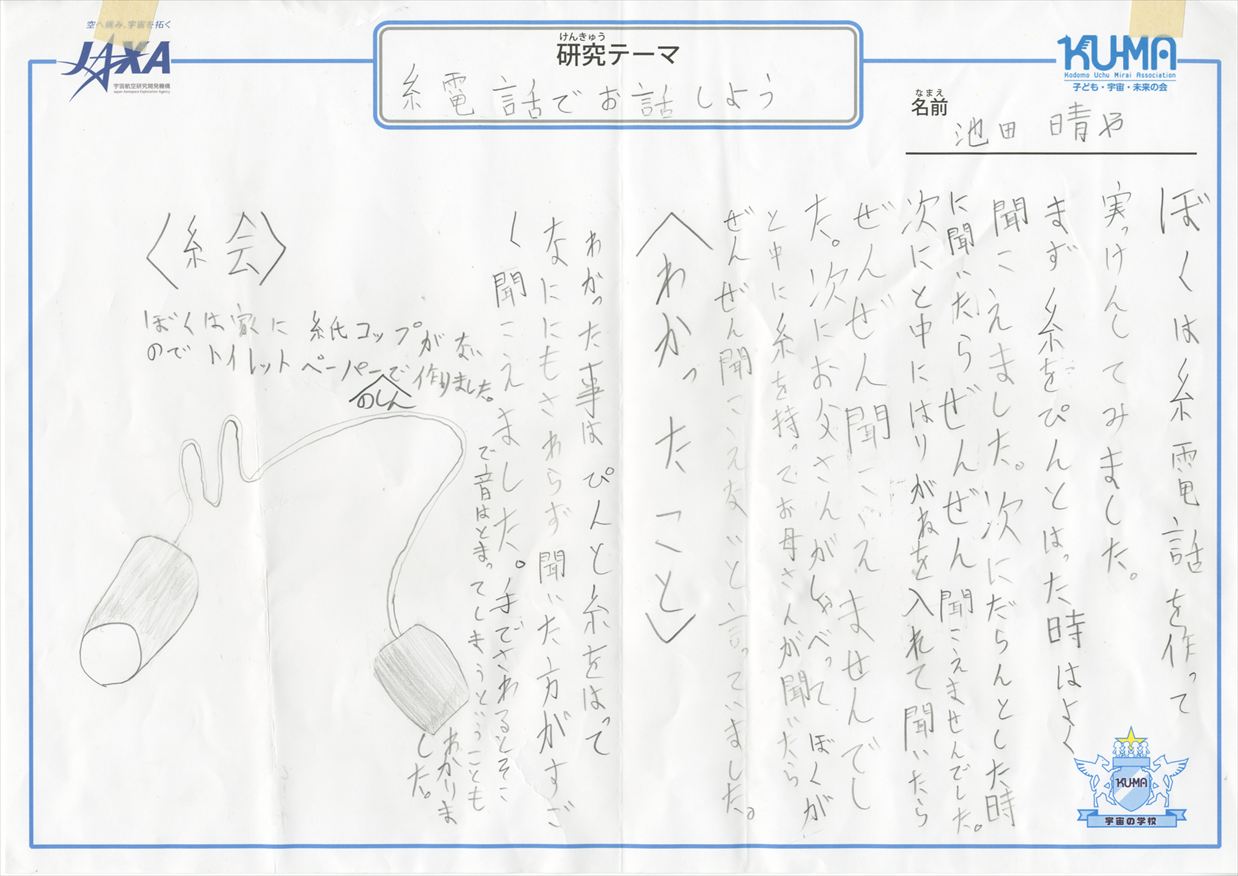 空へ挑み、宇宙を拓く
JAXA
宇宙航空研究開発機構
Japan Aerospace Exploration Agency
けんきゅう
研究テーマ
糸電話でお話しよう
KU-MA
Kodomo Uchu Mirai Association
子ども・宇宙・未来の会
なまえ
名前
池田 晴や
ぼくは糸電話を作って
実っけんしてみました。
まず糸をぴんとはった時はよく
聞こえました。次にだらんとした時
に聞いたらぜんぜん聞こえませんでした。
次にと中にはりがねを入れて聞いたら
ぜんぜん聞こえませんでし
た。次にお父さんがしゃべって ぼくが
と中に糸を持ってお母さんが聞いたら
ぜんぜん聞こえないと言っていました。
〈わかったこと〉
わかった事は ぴんと糸をはって
なににもさわらず聞いた方がすご
く聞こえました。手でさわるとそこ
で音はとまってしまうということも
わかりま
した。
〈糸会〉
ぼくは家に 紙コップがない
のでトイレットペーパーで作りました。
のしん
KU-MA
宇宙の学校